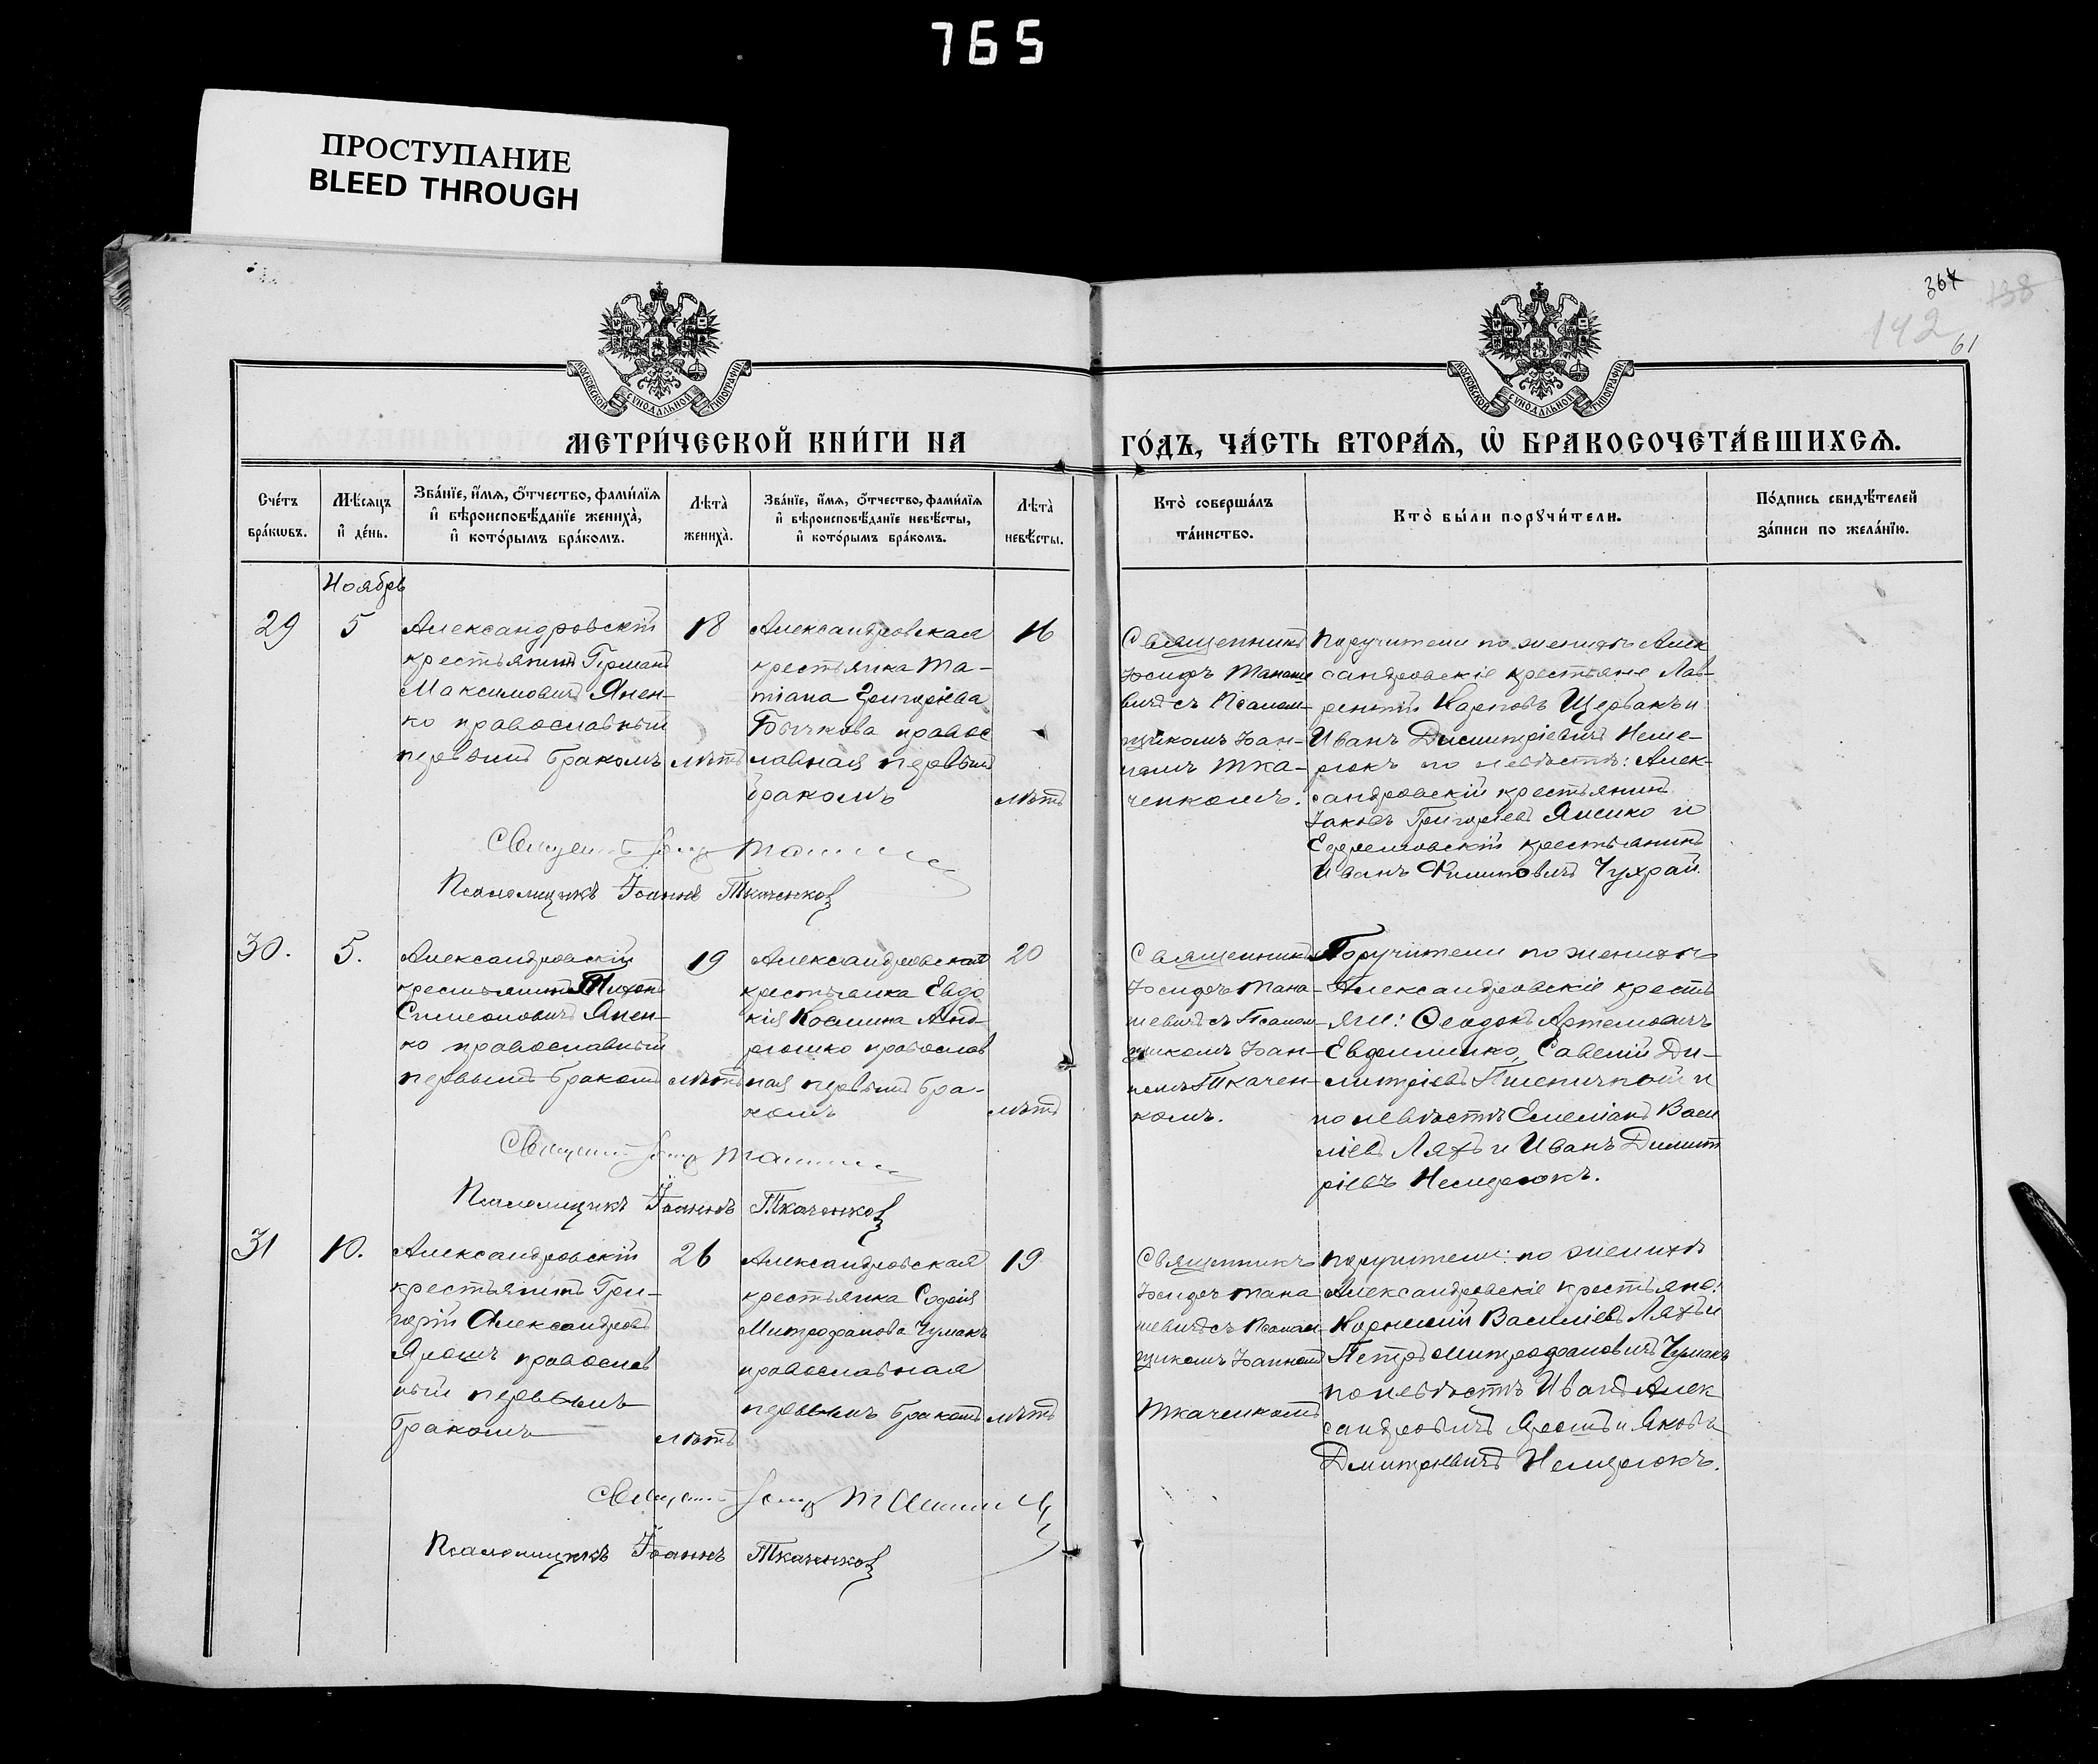 765
ПРОСТУПАНИЕ
BLEED THROUGH
364
138
142
61
МОСКОВСКОЙ СѴНОДАЛЬНОЙ ТИПОГРАФИИ
МОСКОВСКОЙ СѴНОДАЛЬНОЙ ТИПОГРАФИИ
МЕТРИ́ЧЕСКОЙ КНИ́ГИ НА
ГО́ДЪ, ЧА́СТЬ ВТОРА́Ѧ, Ѡ҆ БРАКОСОЧЕТА́ВШИХСѦ.
Сче́тъ
бра́кѡвъ.
Мѣ́сѧцъ
и҆ де́нь.
Зва́нїе, и҆́мѧ, ѻ҆́тчество, фами́лїѧ
и҆ вѣроисповѣ́данїе жениха̀,
и҆ кото́рымъ бра́комъ.
Лѣта̀
жениха̀.
Зва́нїе, и҆́мѧ, ѻ҆́тчество, фами́лїѧ
и҆ вѣроисповѣ́данїе невѣ́сты,
и҆ кото́рымъ бра́комъ.
Лѣта̀
невѣ́сты.
Кто̀ соверша́лъ
та́инство.
Кто̀ бы́ли порꙋчи́тели.
По́дпись свидѣ́телей
за́писи по жела́нїю.
Ноябрь
29
5
Александровскій
крестьянинъ Германъ
Максимовичъ Янен-
ко православный
первымъ бракомъ
18
лѣтъ
Александровская
крестьянка Та-
тіана Григоріева
Бычкова правос
лавная первым
бракомъ
16
лѣтъ
Священникъ
Іосифъ Танаше
вичъ съ Псалом-
щикомъ Іоан-
номъ Тка-
ченкомъ.
Поручители по женихѣ Алек
сандровскіе крестьяне Лав-
рентій Карповъ Щербакъ и
Иванъ Димитріевичъ Неме-
рюкъ по невѣстѣ: Алек-
сандровскій крестьянинъ
Іаковъ Григоріевъ Яненко и
Ефремовскій крестьянинъ
Иванъ Филиповичъ Чухрай.
Псаломщикъ Іоаннъ Ткаченковъ
30.
5.
Александровскій
крестьянинъ Тихонъ
Симеоновичъ Янен-
ко православный
первымъ бракомъ
19
лѣтъ
Александровская
крестьянка Евдо
кія Косьмина Анд-
рюшко православ
ная первымъ бра-
комъ
20
лѣтъ
Священникъ
Іосифъ Тана-
шевичъ съ Псалом-
щикомъ Іоан-
номъ Ткачен-
комъ.
Поручители по женихѣ
Александровскіе кресть
яни: Ѳеодоръ Артемовичъ
Евфименко, Савелій Ди-
митріевъ Пшеничной и
по невѣстѣ Емеліанъ Васи
ліевъ Ляхъ и Иванъ Димит
ріевъ Немерюкъ.
Псаломщикъ Іоаннъ Ткаченковъ
31
10.
Александровскій
крестьянинъ Гри-
горій Александровъ
Ярошъ православ
ный первымъ
бракомъ
26
лѣтъ
Александровская
крестьянка Софія
Митрофанова Чумакъ
православная
первымъ бракомъ
19
лѣтъ
Священникъ
Іосифъ Тана
шевичъ съ Псалом-
щикомъ Іоанномъ
Ткаченкомъ
поручители: по женихѣ
Александровскіе крестьяне:
Корнилій Василіевъ Ляхъ и
Петръ Митрофановичъ Чумакъ
по невѣстѣ Иванъ Алек
сандровичъ Ярошъ и Яковъ
Дмитріевичъ Немерюкъ.
Псаломщикъ Іоаннъ Ткаченковъ